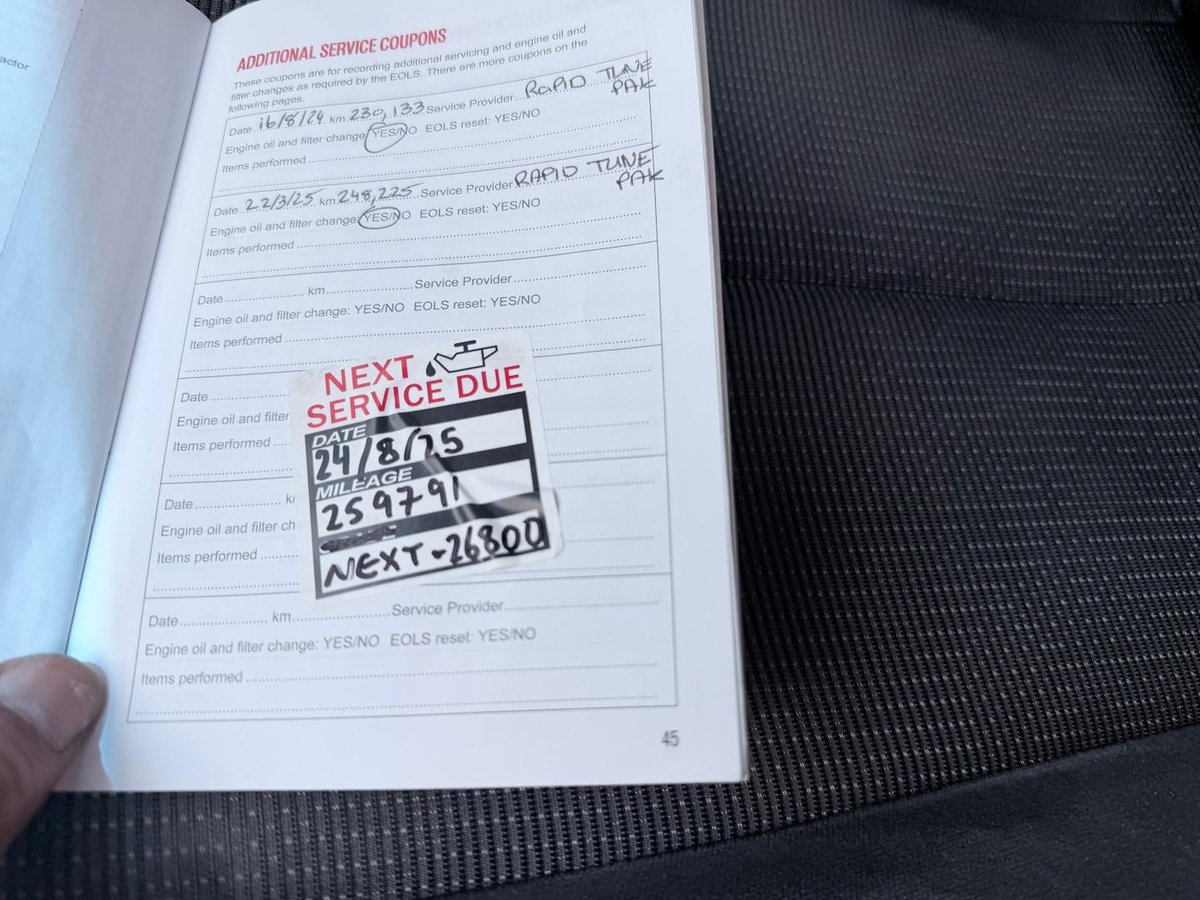 actor
ADDITIONAL SERVICE COUPONS
These coupons are for recording additional servicing and engine oil and
filter changes as required by the EOLS. There are more coupons on the
following pages.
Date 16/8/24 km 230,133 Service Provider RAPID TUNE
PAK
Engine oil and filter change YES/NO EOLS reset: YES/NO
Items performed
Date 22/3/25 km 248,225 Service Provider RAPID TUNE
PAK
Engine oil and filter change YES/NO EOLS reset: YES/NO
Items performed
Date km Service Provider
Engine oil and filter change: YES/NO EOLS reset: YES/NO
Items performed
Date
Engine oil and filter
Items performed
Date
Engine oil and filter ch
Items performed
NEXT
SERVICE DUE
DATE
24/8/25
MILEAGE
259791
NEXT-26800
Date km Service Provider
Engine oil and filter change: YES/NO EOLS reset: YES/NO
Items performed
45